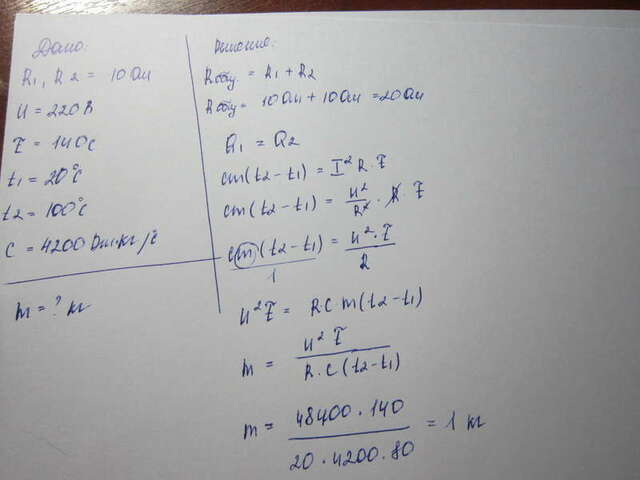 Дано:
R1, R2 = 10 Ом
U = 220 В
τ = 140 с
t1 = 20°C
t2 = 100°C
C = 4200 Дж·кг/°c
m = ? кг
Решение:
Rобщ = R1 + R2
Rобщ = 10 Ом + 10 Ом = 20 Ом
Q1 = Q2
cm(t2 - t1) = I² R · τ
cm(t2 - t1) = U²/R² · R · τ
cm(t2 - t1)/1 = U² · τ/R
U² τ = R C m(t2 - t1)
m = U² τ / R · C (t2 - t1)
m = 48400 · 140 / 20 · 4200 · 80 = 1 кг